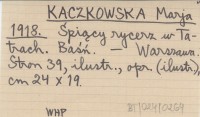 KACZKOWSKA Marja
1918. Śpiący rycerz w Ta-
trach. Baśń. Warszawa.
Stron 39, ilustr., opr. (ilustr.),
cm 24 x 19.
WHP